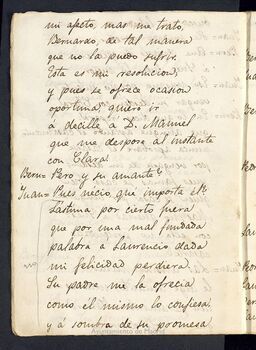 mi afecto, mas me trato,
Bernardo, de tal manera
que no la puedo sufrir.
Esta es mi resolucion,
y pues se ofrece ocasion
oportuna, quiero ir
á decille á D. Manuel
que me despose al instante
con Clara.
Bern= Pero, y su amante?
Juan= Pues necio, que importa el?
Lastima por cierto fuera
que por una mal fundada
palabra á Laurencio dada
mi felicidad perdiera.
Su padre me la ofrecia
como el mismo lo confiesa,
y á sombra de su promesa
Ayuntamiento de Madrid